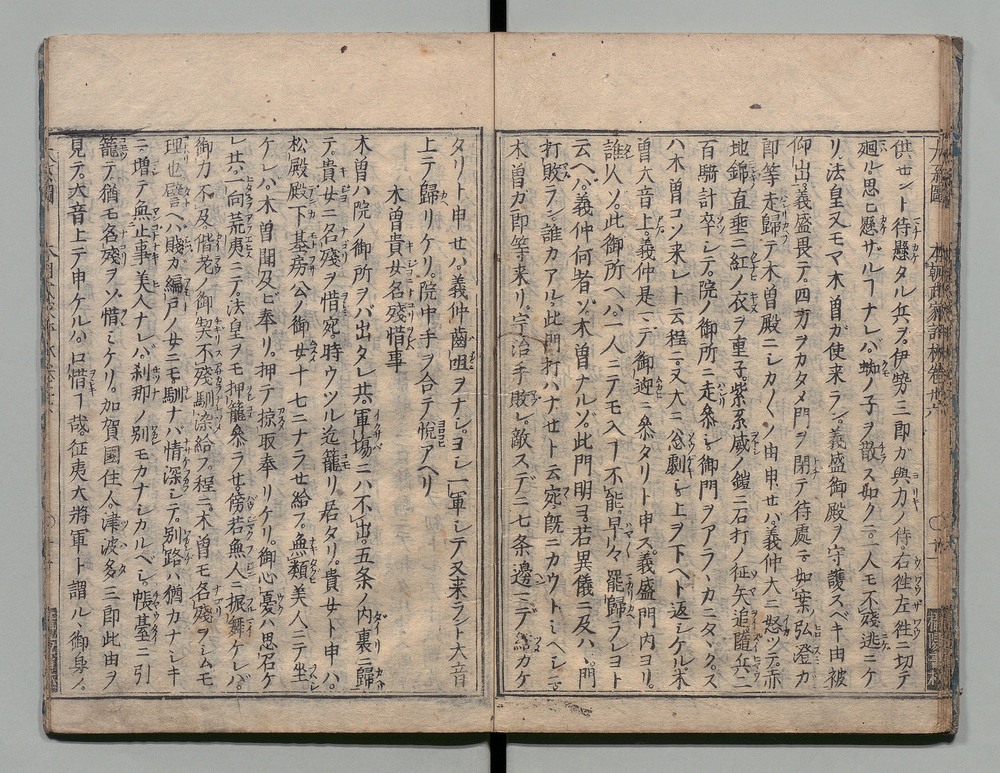 供セント待懸タル兵ヲ。伊勢三郎ガ與力ノ侍。右往左往ニ切テ
廻ル思ヒ懸ザルヿナレバ。蜘ノ子ヲ散ス如クニ。一人モ不殘逃ニケ
リ法皇又モヤ木曽ガ使来ラン。義盛御殿ヲ守護スベキ由被
仰出。義盛畏テ。四方ヲカタメ門ヲ閉テ待處ニ。如案弘澄ガ
郎等走歸テ木曽殿ニシカ〱ノ由申セバ。義仲大ニ怒ツテ赤
地錦ノ直垂ニ紅ノ衣ヲ重子。紫糸威ノ鎧ニ石打ノ征矢追隨兵二
百騎計卒シテ。院ノ御所ニ走参シ御門ヲアラヽカニタヽクス
ハ木曽コソ来レト云程ニ。又大ニ忩劇シ上ヲ下ヘト返シケル。木
曽大音上。義仲是ニテ御迎ニ参タリト申ス。義盛門内ヨリ。
誰人ノ。此御所ヘ。一人ニテモ入ヿ不能。早々罷歸ラレヨト
云ヘバ。義仲何者ゾ。木曽ナルゾ。此門明ヨ。若異儀ニ及ハヽ。門
打敗ラン誰カアル。此門打ハナセト云宛。既ニカウトミヘシニ。
木曽ガ郎等来リ。宇治手敗レ。敵スデニ七条邊ニテ
タリト申セハ。義仲齒咀ヲナシ。ヨシ一軍シテ又来ラント大音
上テ歸リケリ。院中手ヲ合テ悦アヘリ
木曽貴女名殘惜事
木曽ハ院ノ御所ヲバ出タレ共。軍場ニハ不出。五条ノ内裏ニ歸
テ。貴女ニ名殘ヲ惜宛。時ウツル迄籠リ居タリ。貴女ト申ハ。
松殿殿下基房公ノ御女十七ニナラセ給フ。無類美人ニテ坐
ケレバ。木曽聞及ビ奉リ。押テ掠取奉リケリ。御心憂ハ思召ケ
レ共。一向荒夷ニテ。法皇ヲモ押籠参ラセ。傍若無人ニ振舞ケレバ。
御力不及。偕老ノ御契不殘馴染給フ。程ニ木曽モ名殘ヲシムモ
理也。譬ヘハ賤カ編戸ノ女ニモ。馴ナバ情深シテ。別路ハ猶カナシキ
ニ。増テ無止事美人ナレバ。刹那ノ別モカナシカルベシ。帳臺ニ引
籠テ猶モ名殘ヲゾ惜ミケリ。加賀國住人。津波多三郎此由ヲ
見テ。大音上テ申ケルハ。口惜ヿ哉征夷大将軍ト謂ル。御身ノ。